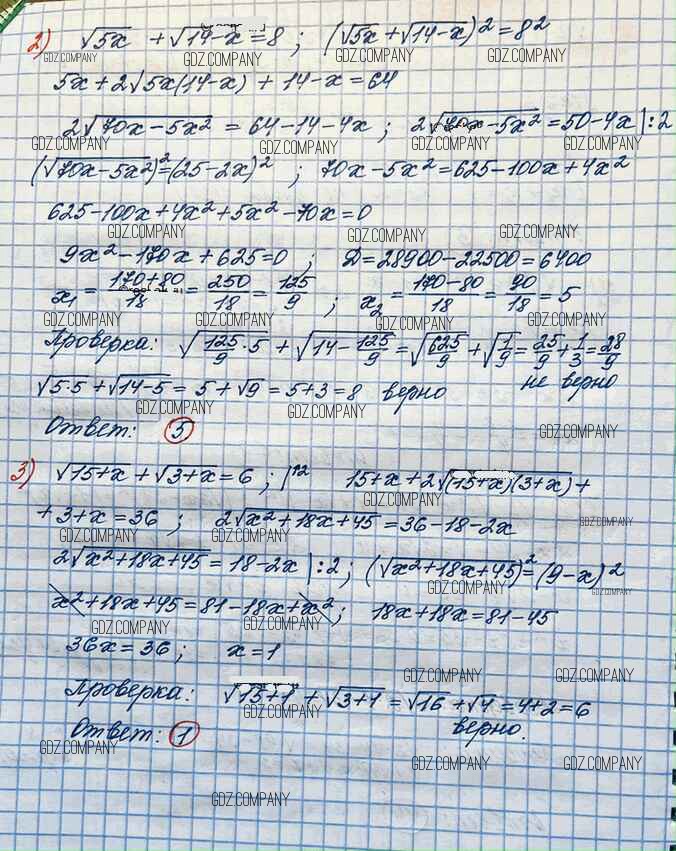 2) √5x + √14-x = 8 ; (√5x + √14-x)² = 8²
GDZ.COMPANY GDZ.COMPANY GDZ.COMPANY
5x + 2√5x(14-x) + 14-x = 64
2√70x-5x² = 64-14-4x ; 2√70x-5x² = 50-4x |:2
GDZ.COMPANY GDZ.COMPANY GDZ.COMPANY GDZ.COMPANY
(√70x-5x²)² = (25-2x)² ; 70x-5x² = 625-100x+4x²
625-100x+4x²+5x²-70x=0
GDZ.COMPANY GDZ.COMPANY GDZ.COMPANY
9x²-170x+625=0 ; Д=28900-22500=6400
x₁ = 170+80/18 = 250/18 = 125/9 ; x₂ = 170-80/18 = 90/18 = 5
GDZ.COMPANY GDZ.COMPANY GDZ.COMPANY
Проверка: √125/9·5 + √14-125/9 = √625/9 + √1/9 = 25/9 + 1/3 = 28/9
не верно
√5·5 + √14-5 = 5+√9 = 5+3 = 8 верно
GDZ.COMPANY GDZ.COMPANY
Ответ: 5
GDZ.COMPANY
3) √15+x + √3+x = 6 ; |² 15+x+2√(15+x)(3+x) +
GDZ.COMPANY
+3+x=36 ; 2√x²+18x+45 = 36-18-2x
GDZ.COMPANY GDZ.COMPANY GDZ.COMPANY
2√x²+18x+45 = 18-2x |:2 ; (√x²+18x+45)² = (9-x)²
GDZ.COMPANY GDZ.COMPANY
x²+18x+45=81-18x+x² ; 18x+18x=81-45
GDZ.COMPANY GDZ.COMPANY
36x=36 ; x=1
GDZ.COMPANY GDZ.COMPANY
Проверка: √15+1 + √3+1 = √16 + √4 = 4+2 = 6
GDZ.COMPANY
верно.
Ответ: 1
GDZ.COMPANY GDZ.COMPANY GDZ.COMPANY
GDZ.COMPANY